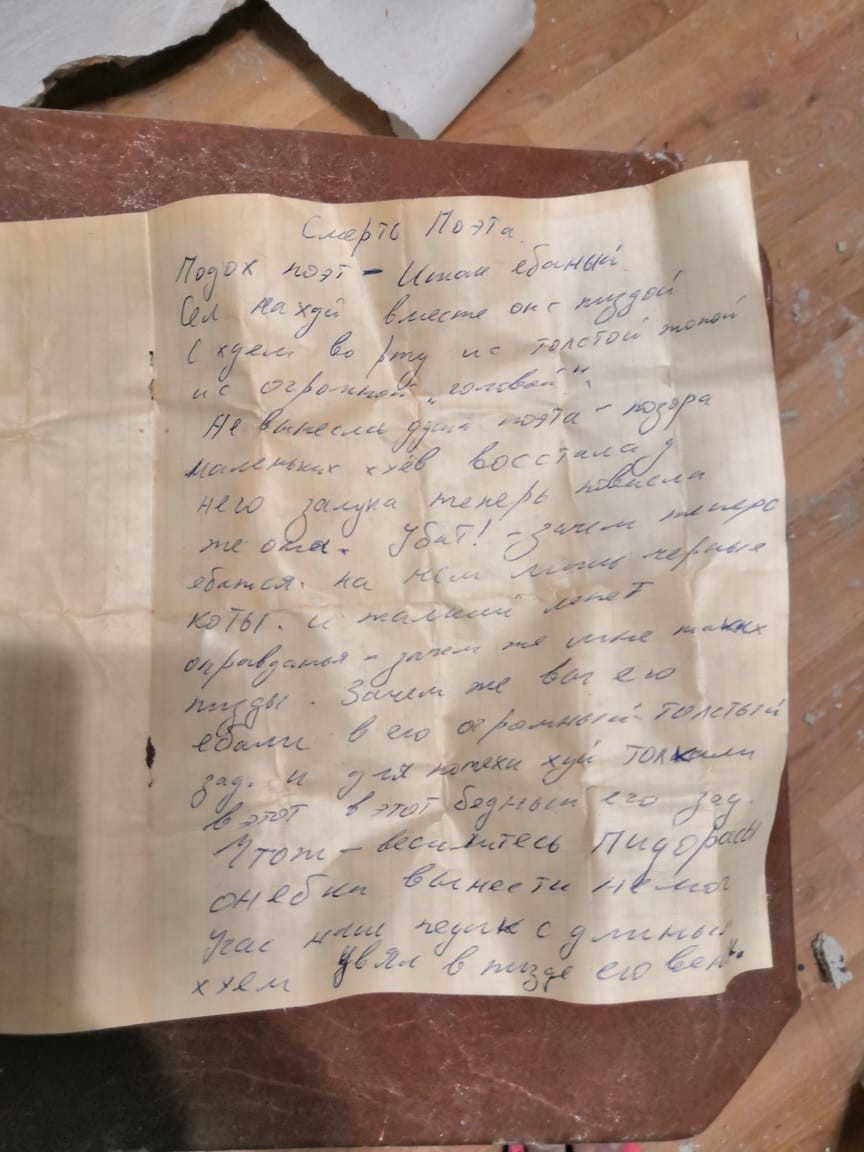 Смерть Поэта
Подох поэт - Ишак ебаный
Сел нахуй вместе он с пиздой
С хуем во рту и с толстой жопой
и с огромной "головой".
Не вынесла душа поэта - позора
маленьких хуёв восстала у
него залупа теперь повисла
же она. Убит! - зачем теперь
ебатся. на нем лишь черные
коты. и жалкий лепет
оправданья - зачем же мне таких
пизды. Зачем же вы его
ебали в его огромный толстый
зад. и для потехи хуй толкали
в этот в этот бедный его зад.
Чтож - веселитесь Пидорасы
он ебки вынести не мог
Угас наш педик с длиным
хуем увял в пизде его вен.